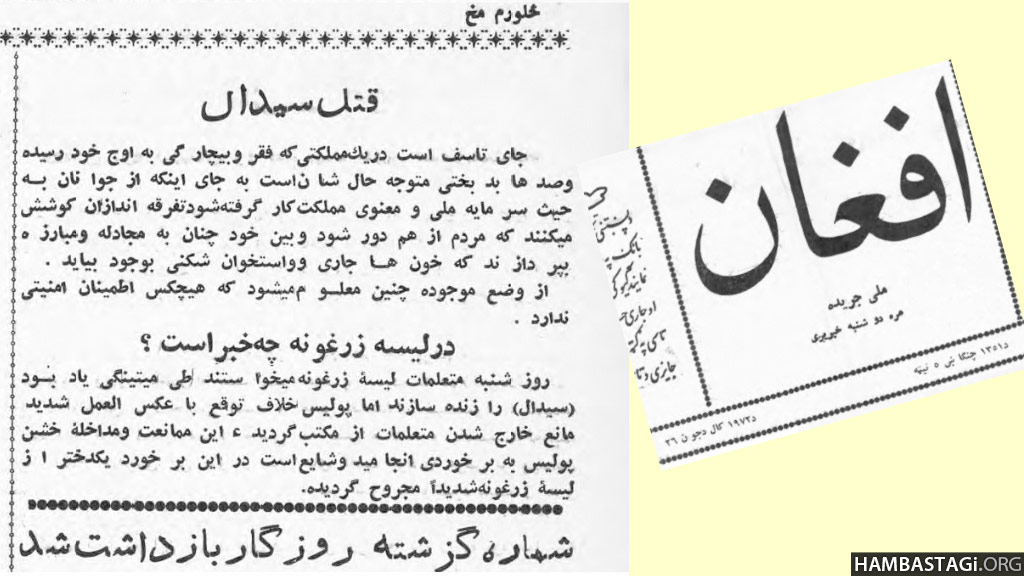 څلورم مخ
قتل سیدال
جای تاسف است دریك مملکتی که فقر و بیچار گی به اوج خود رسیده
وصد ها بد بختی متوجه حال شا ن است به جای اینکه از جوا نان بــه
حیث سر مایه ملی و معنوی مملکت کار گرفته شود تفرقه اندازان کوشش
میکنند که مردم از هم دور شود و بین خود چنان به مجادله ومبارز ه
بپر داز ند که خون هــا جاری وواستخوان شکنی بوجود بیاید .
از وضع موجوده چنین معلــو م میشود که هیچکس اطمینان امنیتی
ندارد .
در لیسه زرغونه چه خبر است ؟
روز شنبه متعلمات لیسهٔ زرغونه میخوا ستند طی میتینگی یاد بــود
(سیدال) را زنده سازند اما پولیس خلاف توقع با عکس العمل شدید
مانع خارج شدن متعلمات از مکتب گردید ء این ممانعت ومداخلهٔ خشن
پولیس به بر خوردی انجا مید وشایع است در این بر خورد یکدختر ا ز
لیسهٔ زرغونه شدیداً مجروح گردیده.
شماره گزشته روزگار بازداشت شد
افغان
ملی جریده
مره دو شنبه خپریږی
د ۱۳۵۱ چنگا ښ ۵ نیټه
د ۱۹۷۲ کال د جو ن ۲۶
HAMBASTAGI.ORG